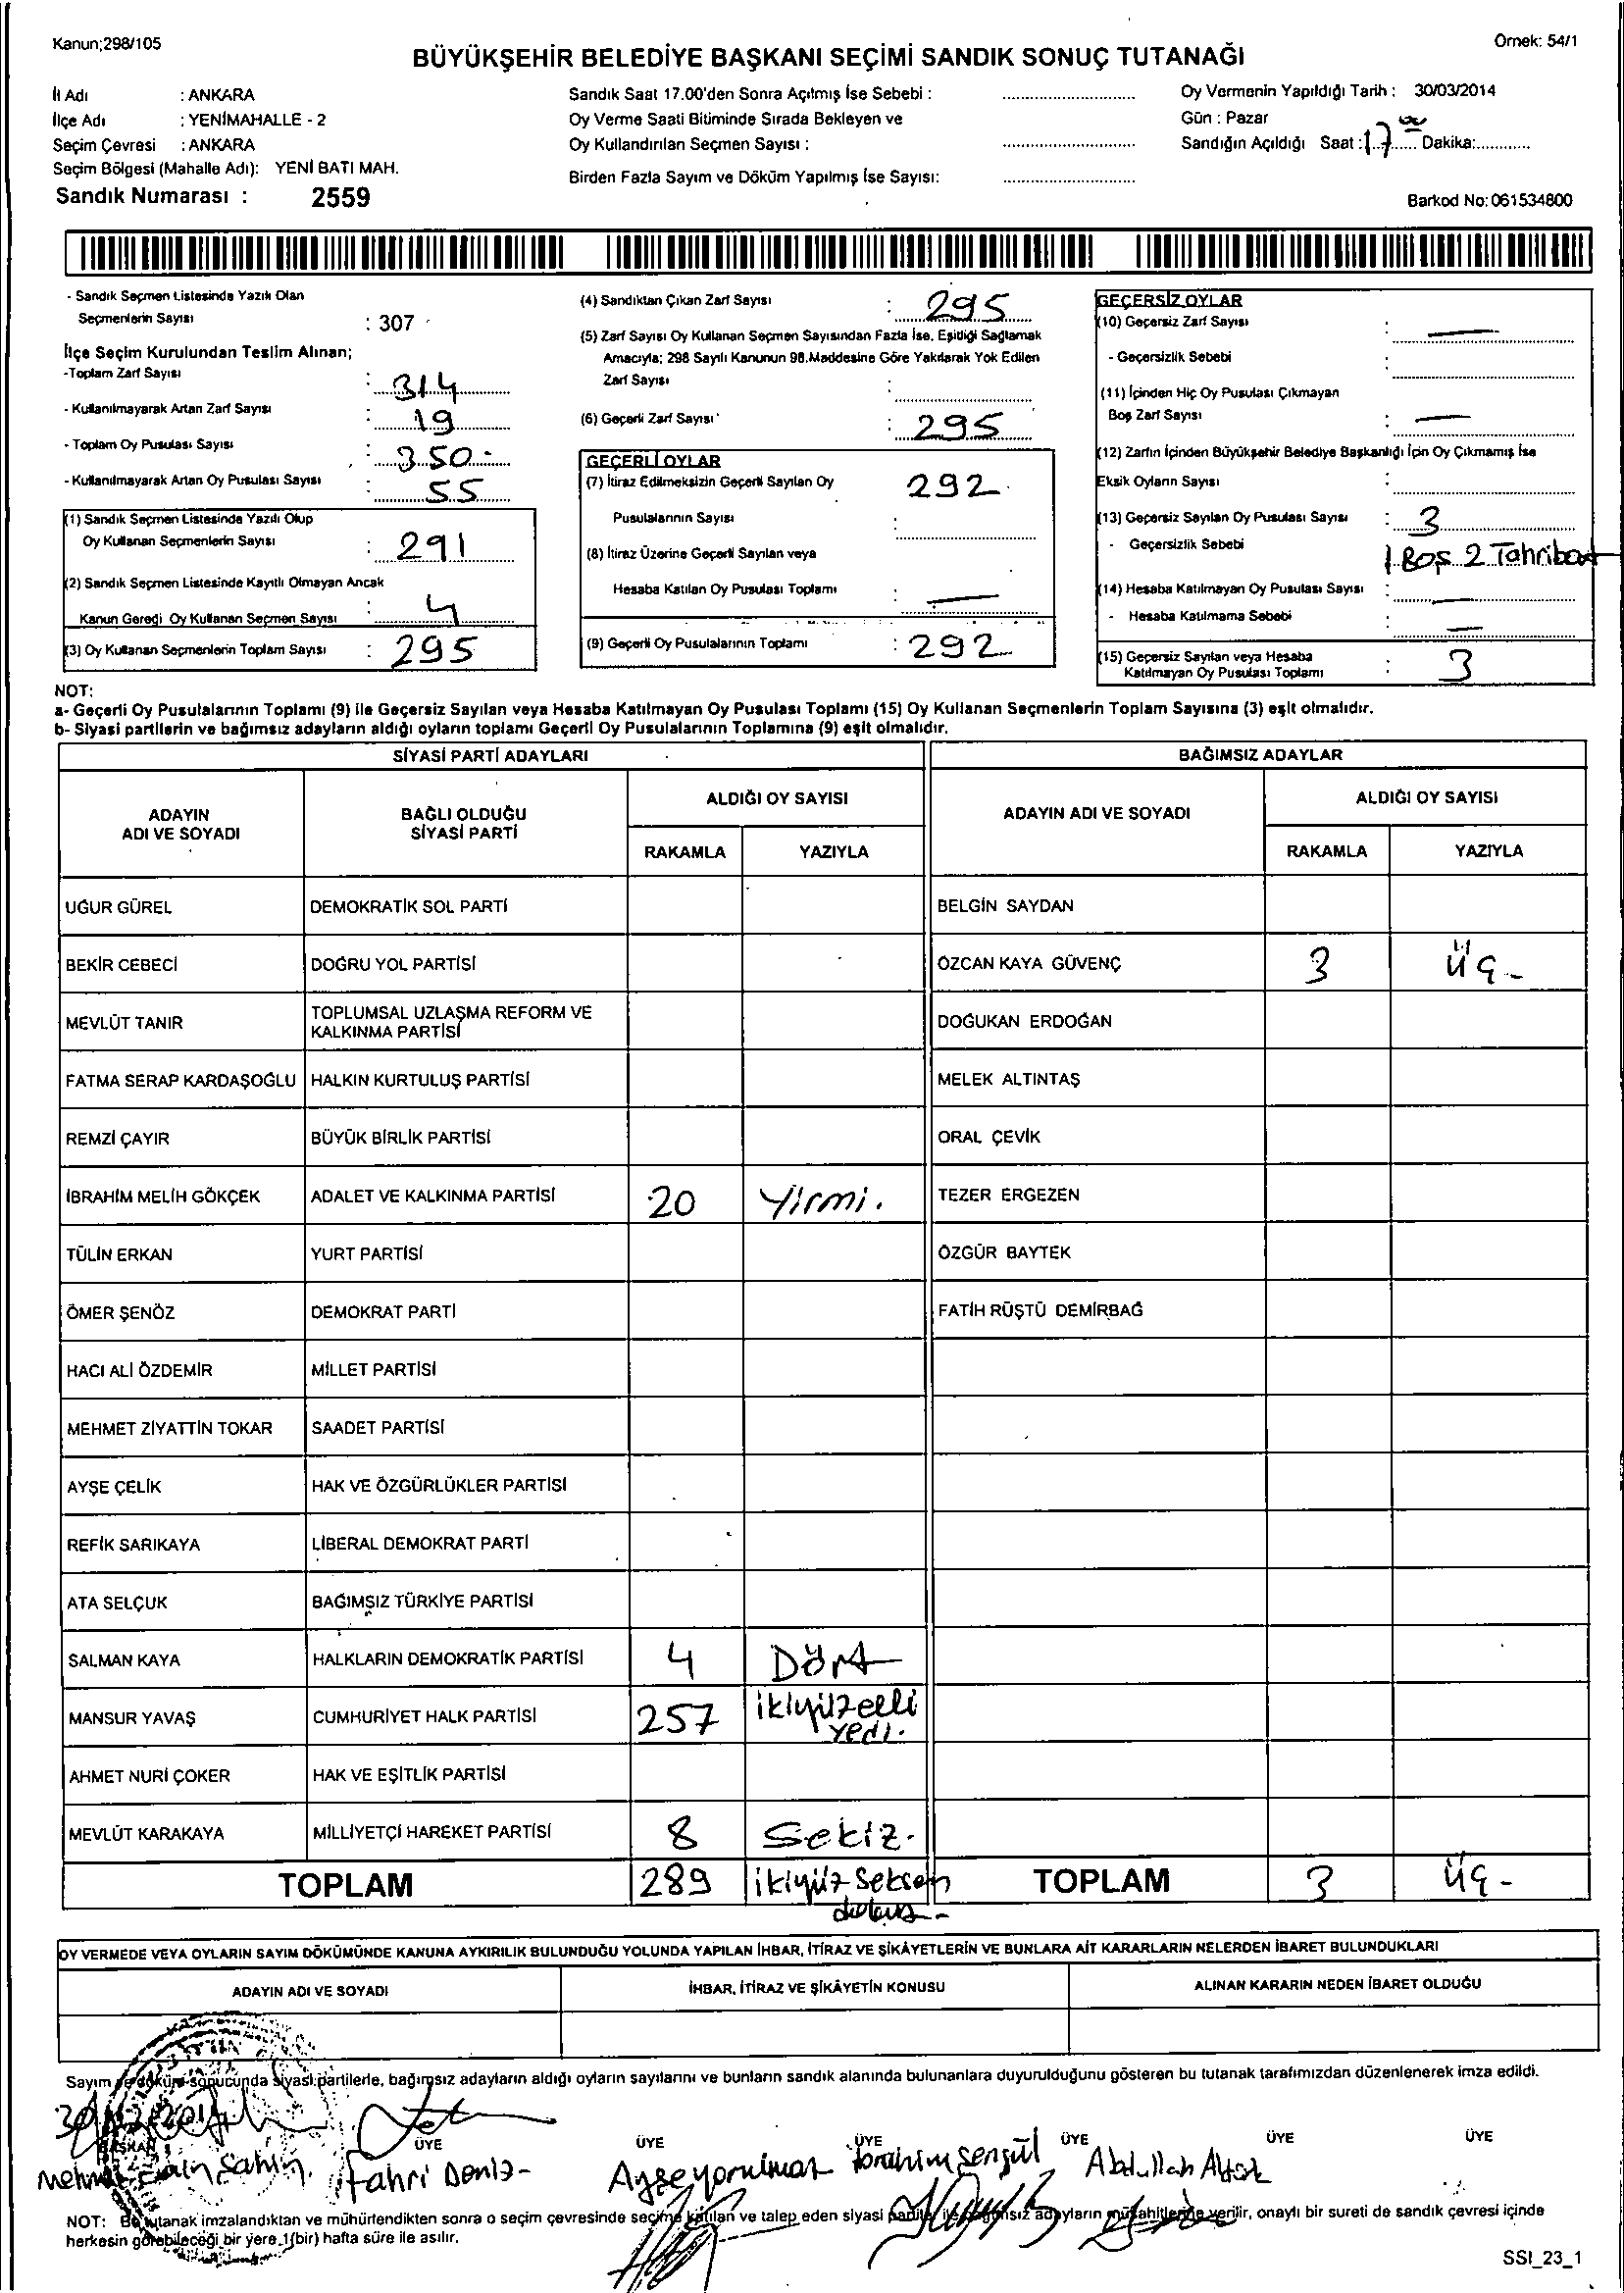 Kanun;298/105
Örnek: 54/1
BÜYÜKŞEHİR BELEDİYE BAŞKANI SEÇİMİ SANDIK SONUÇ TUTANAĞI
İl Adı : ANKARA
İlçe Adı : YENİMAHALLE - 2
Seçim Çevresi : ANKARA
Seçim Bölgesi (Mahalle Adı): YENİ BATI MAH.
Sandık Numarası : 2559
Sandık Saat 17.00'den Sonra Açılmış İse Sebebi :
Oy Verme Saati Bitiminde Sırada Bekleyen ve
Oy Kullandırılan Seçmen Sayısı :
Birden Fazla Sayım ve Döküm Yapılmış İse Sayısı:
Oy Vermenin Yapıldığı Tarih : 30/03/2014
Gün : Pazar
Sandığın Açıldığı Saat : 17 00 Dakika:
Barkod No: 061534800
- Sandık Seçmen Listesinde Yazılı Olan
Seçmenlerin Sayısı : 307
İlçe Seçim Kurulundan Teslim Alınan;
-Toplam Zarf Sayısı : 314
- Kullanılmayarak Artan Zarf Sayısı : 19
- Toplam Oy Pusulası Sayısı : 350
- Kullanılmayarak Artan Oy Pusulası Sayısı : 55
(1) Sandık Seçmen Listesinde Yazılı Olup
Oy Kullanan Seçmenlerin Sayısı : 291
(2) Sandık Seçmen Listesinde Kayıtlı Olmayan Ancak
Kanun Gereği Oy Kullanan Seçmen Sayısı : 4
(3) Oy Kullanan Seçmenlerin Toplam Sayısı : 295
(4) Sandıktan Çıkan Zarf Sayısı : 295
(5) Zarf Sayısı Oy Kullanan Seçmen Sayısından Fazla İse, Eşitliği Sağlamak
Amacıyla; 298 Sayılı Kanunun 98.Maddesine Göre Yakılarak Yok Edilen
Zarf Sayısı :
(6) Geçerli Zarf Sayısı : 295
GEÇERLİ OYLAR
(7) İtiraz Edilmeksizin Geçerli Sayılan Oy 292
Pusulalarının Sayısı :
(8) İtiraz Üzerine Geçerli Sayılan veya
Hesaba Katılan Oy Pusulası Toplamı : —
(9) Geçerli Oy Pusulalarının Toplamı : 292
GEÇERSİZ OYLAR
(10) Geçersiz Zarf Sayısı : —
- Geçersizlik Sebebi :
(11) İçinden Hiç Oy Pusulası Çıkmayan
Boş Zarf Sayısı : —
(12) Zarfın İçinden Büyükşehir Belediye Başkanlığı İçin Oy Çıkmamış İse
Eksik Oyların Sayısı :
(13) Geçersiz Sayılan Oy Pusulası Sayısı : 3
- Geçersizlik Sebebi 1 Boş 2 Tahribat
(14) Hesaba Katılmayan Oy Pusulası Sayısı : —
- Hesaba Katılmama Sebebi —
(15) Geçersiz Sayılan veya Hesaba
Katılmayan Oy Pusulası Toplamı : 3
NOT:
a- Geçerli Oy Pusulalarının Toplamı (9) ile Geçersiz Sayılan veya Hesaba Katılmayan Oy Pusulası Toplamı (15) Oy Kullanan Seçmenlerin Toplam Sayısına (3) eşit olmalıdır.
b- Siyasi partilerin ve bağımsız adayların aldığı oyların toplamı Geçerli Oy Pusulalarının Toplamına (9) eşit olmalıdır.
SİYASİ PARTİ ADAYLARI BAĞIMSIZ ADAYLAR
ADAYIN ADI VE SOYADI BAĞLI OLDUĞU SİYASİ PARTİ ALDIĞI OY SAYISI ADAYIN ADI VE SOYADI ALDIĞI OY SAYISI
RAKAMLA YAZIYLA RAKAMLA YAZIYLA
UĞUR GÜREL DEMOKRATİK SOL PARTİ BELGİN SAYDAN
BEKİR CEBECİ DOĞRU YOL PARTİSİ ÖZCAN KAYA GÜVENÇ 3 Üç -
MEVLÜT TANIR TOPLUMSAL UZLAŞMA REFORM VE KALKINMA PARTİSİ DOĞUKAN ERDOĞAN
FATMA SERAP KARDAŞOĞLU HALKIN KURTULUŞ PARTİSİ MELEK ALTINTAŞ
REMZİ ÇAYIR BÜYÜK BİRLİK PARTİSİ ORAL ÇEVİK
İBRAHİM MELİH GÖKÇEK ADALET VE KALKINMA PARTİSİ 20 Yirmi. TEZER ERGEZEN
TÜLİN ERKAN YURT PARTİSİ ÖZGÜR BAYTEK
ÖMER ŞENÖZ DEMOKRAT PARTİ FATİH RÜŞTÜ DEMİRBAĞ
HACI ALİ ÖZDEMİR MİLLET PARTİSİ
MEHMET ZİYATTİN TOKAR SAADET PARTİSİ
AYŞE ÇELİK HAK VE ÖZGÜRLÜKLER PARTİSİ
REFİK SARIKAYA LİBERAL DEMOKRAT PARTİ
ATA SELÇUK BAĞIMSIZ TÜRKİYE PARTİSİ
SALMAN KAYA HALKLARIN DEMOKRATİK PARTİSİ 4 Dört
MANSUR YAVAŞ CUMHURİYET HALK PARTİSİ 257 ikiyüzelli yedi.
AHMET NURİ ÇOKER HAK VE EŞİTLİK PARTİSİ
MEVLÜT KARAKAYA MİLLİYETÇİ HAREKET PARTİSİ 8 Sekiz.
TOPLAM 289 ikiyüz seksen dokuz - TOPLAM 3 Üç -
OY VERMEDE VEYA OYLARIN SAYIM DÖKÜMÜNDE KANUNA AYKIRILIK BULUNDUĞU YOLUNDA YAPILAN İHBAR, İTİRAZ VE ŞİKÂYETLERİN VE BUNLARA AİT KARARLARIN NELERDEN İBARET BULUNDUKLARI
ADAYIN ADI VE SOYADI İHBAR, İTİRAZ VE ŞİKÂYETİN KONUSU ALINAN KARARIN NEDEN İBARET OLDUĞU
Sayım ve döküm sonucunda siyasi partilerle, bağımsız adayların aldığı oyların sayılarını ve bunların sandık alanında bulunanlara duyurulduğunu gösteren bu tutanak tarafımızdan düzenlenerek imza edildi.
BAŞKAN ÜYE ÜYE ÜYE ÜYE ÜYE ÜYE
Mehmet Emin Şahin Fahri Deniz - Ayşe Yorulmaz İbrahim Şengül Abdullah
NOT: Bu tutanak imzalandıktan ve mühürlendikten sonra o seçim çevresinde seçime katılan ve talep eden siyasi partiler ile bağımsız adayların müşahitlerine verilir, onaylı bir sureti de sandık çevresi içinde
herkesin görebileceği bir yere 1(bir) hafta süre ile asılır.
SSI_23_1